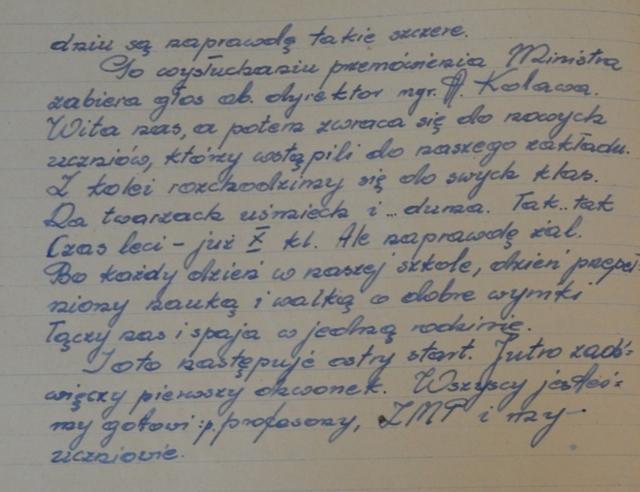 dniu są naprawdę takie szczere.
Po wysłuchaniu przemówienia Ministra
zabiera głos ob. dyrektor mgr. A. Kaława.
Wita nas, a potem zwraca się do nowych
uczniów, którzy wstąpili do naszego zakładu.
Z kolei rozchodzimy się do swych klas.
Na twarzach uśmiech i... duma. Tak.. tak
Czas leci - już X kl. Ale naprawdę żal.
Bo każdy dzień w naszej szkole, dzień przepeł-
niony nauką i walką o dobre wyniki
łączy nas i spaja w jedną rodzinę.
I oto następuje ostry start. Jutro zadź-
więczy pierwszy dzwonek. Wszyscy jesteś-
my gotowi: p. profesorzy, ZMP i my
uczniowie.